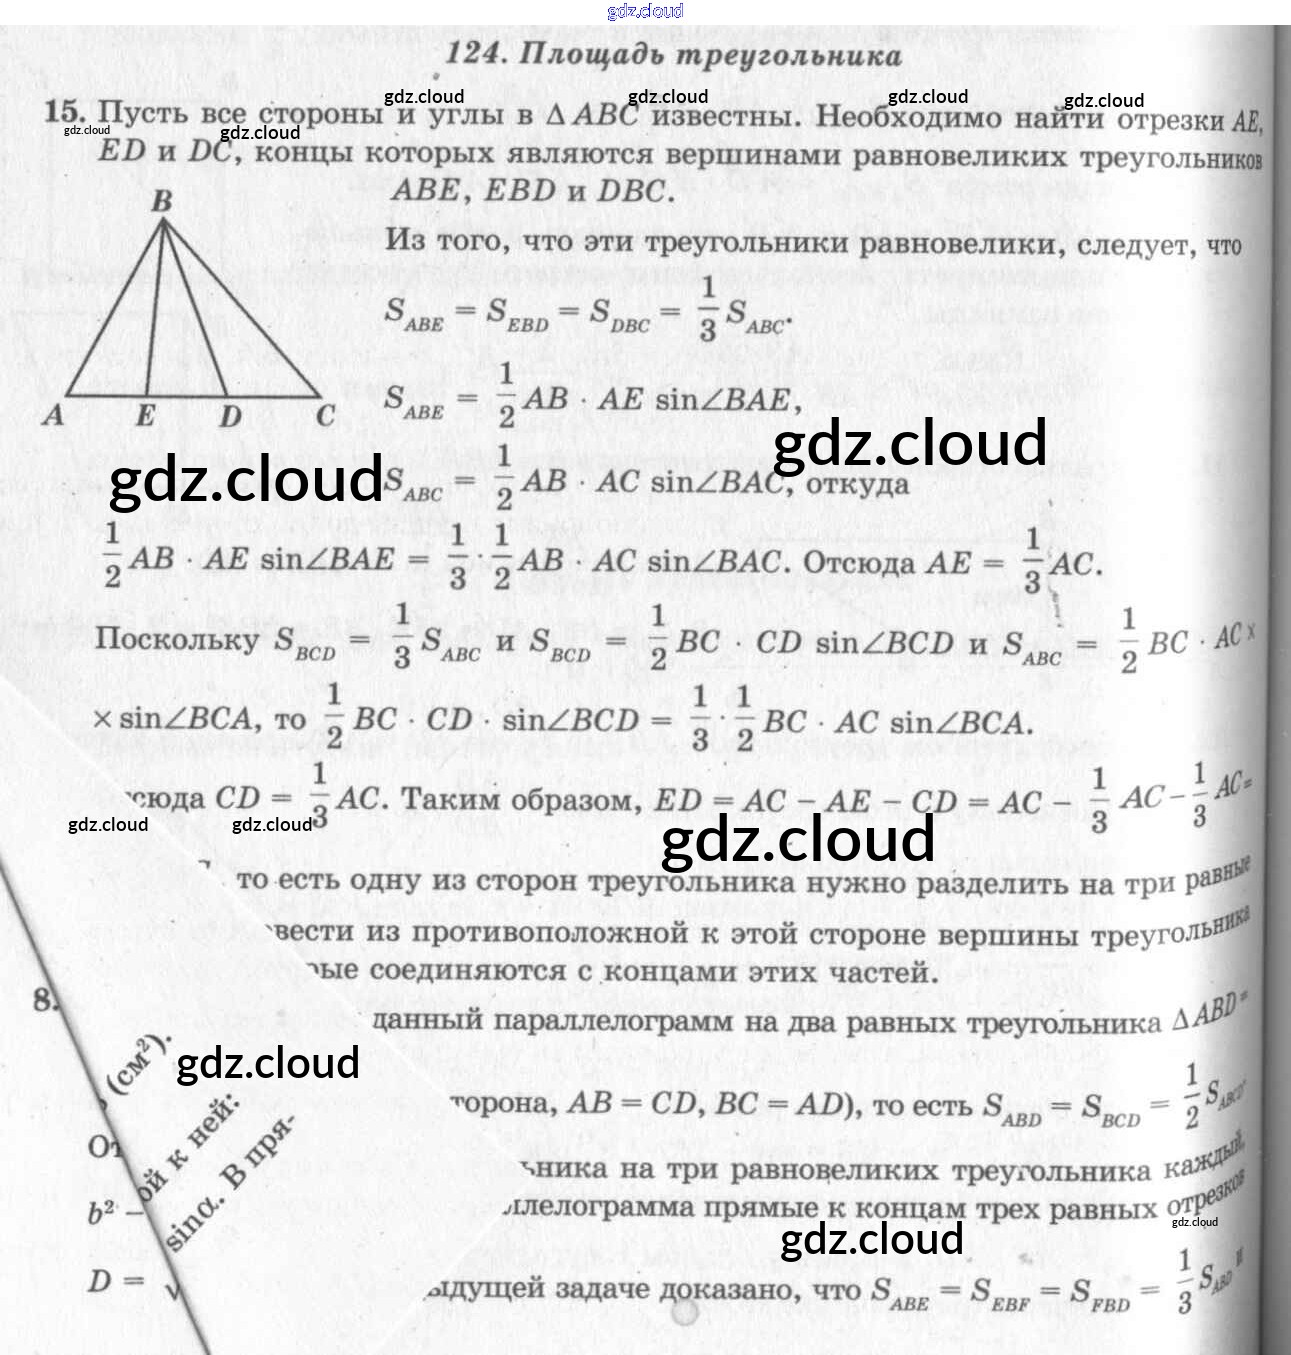 gdz.cloud
124. Площадь треугольника
gdz.cloud gdz.cloud gdz.cloud gdz.cloud
15. Пусть все стороны и углы в Δ ABC известны. Необходимо найти отрезки AE,
gdz.cloud gdz.cloud
ED и DC, концы которых являются вершинами равновеликих треугольников
ABE, EBD и DBC.
B
Из того, что эти треугольники равновелики, следует, что
S_ABE = S_EBD = S_DBC = 1/3 S_ABC.
S_ABE = 1/2 AB · AE sin∠BAE,
A E D C
gdz.cloud
gdz.cloud
S_ABC = 1/2 AB · AC sin∠BAC, откуда
1/2 AB · AE sin∠BAE = 1/3 · 1/2 AB · AC sin∠BAC. Отсюда AE = 1/3 AC.
Поскольку S_BCD = 1/3 S_ABC и S_BCD = 1/2 BC · CD sin∠BCD и S_ABC = 1/2 BC · AC ×
× sin∠BCA, то 1/2 BC · CD · sin∠BCD = 1/3 · 1/2 BC · AC sin∠BCA.
сюда CD = 1/3 AC. Таким образом, ED = AC − AE − CD = AC − 1/3 AC − 1/3 AC =
gdz.cloud gdz.cloud gdz.cloud
то есть одну из сторон треугольника нужно разделить на три равные
вести из противоположной к этой стороне вершины треугольника
рые соединяются с концами этих частей.
8.
данный параллелограмм на два равных треугольника Δ ABD =
(см²).
gdz.cloud
торона, AB = CD, BC = AD), то есть S_ABD = S_BCD = 1/2 S_ABCD.
От
ой к ней:
ьника на три равновеликих треугольника каждый,
b² −
sinα. В пря-
ллелограмма прямые к концам трех равных отрезков
gdz.cloud
gdz.cloud
D =
ыдущей задаче доказано, что S_ABE = S_EBF = S_FBD = 1/3 S_ABD и